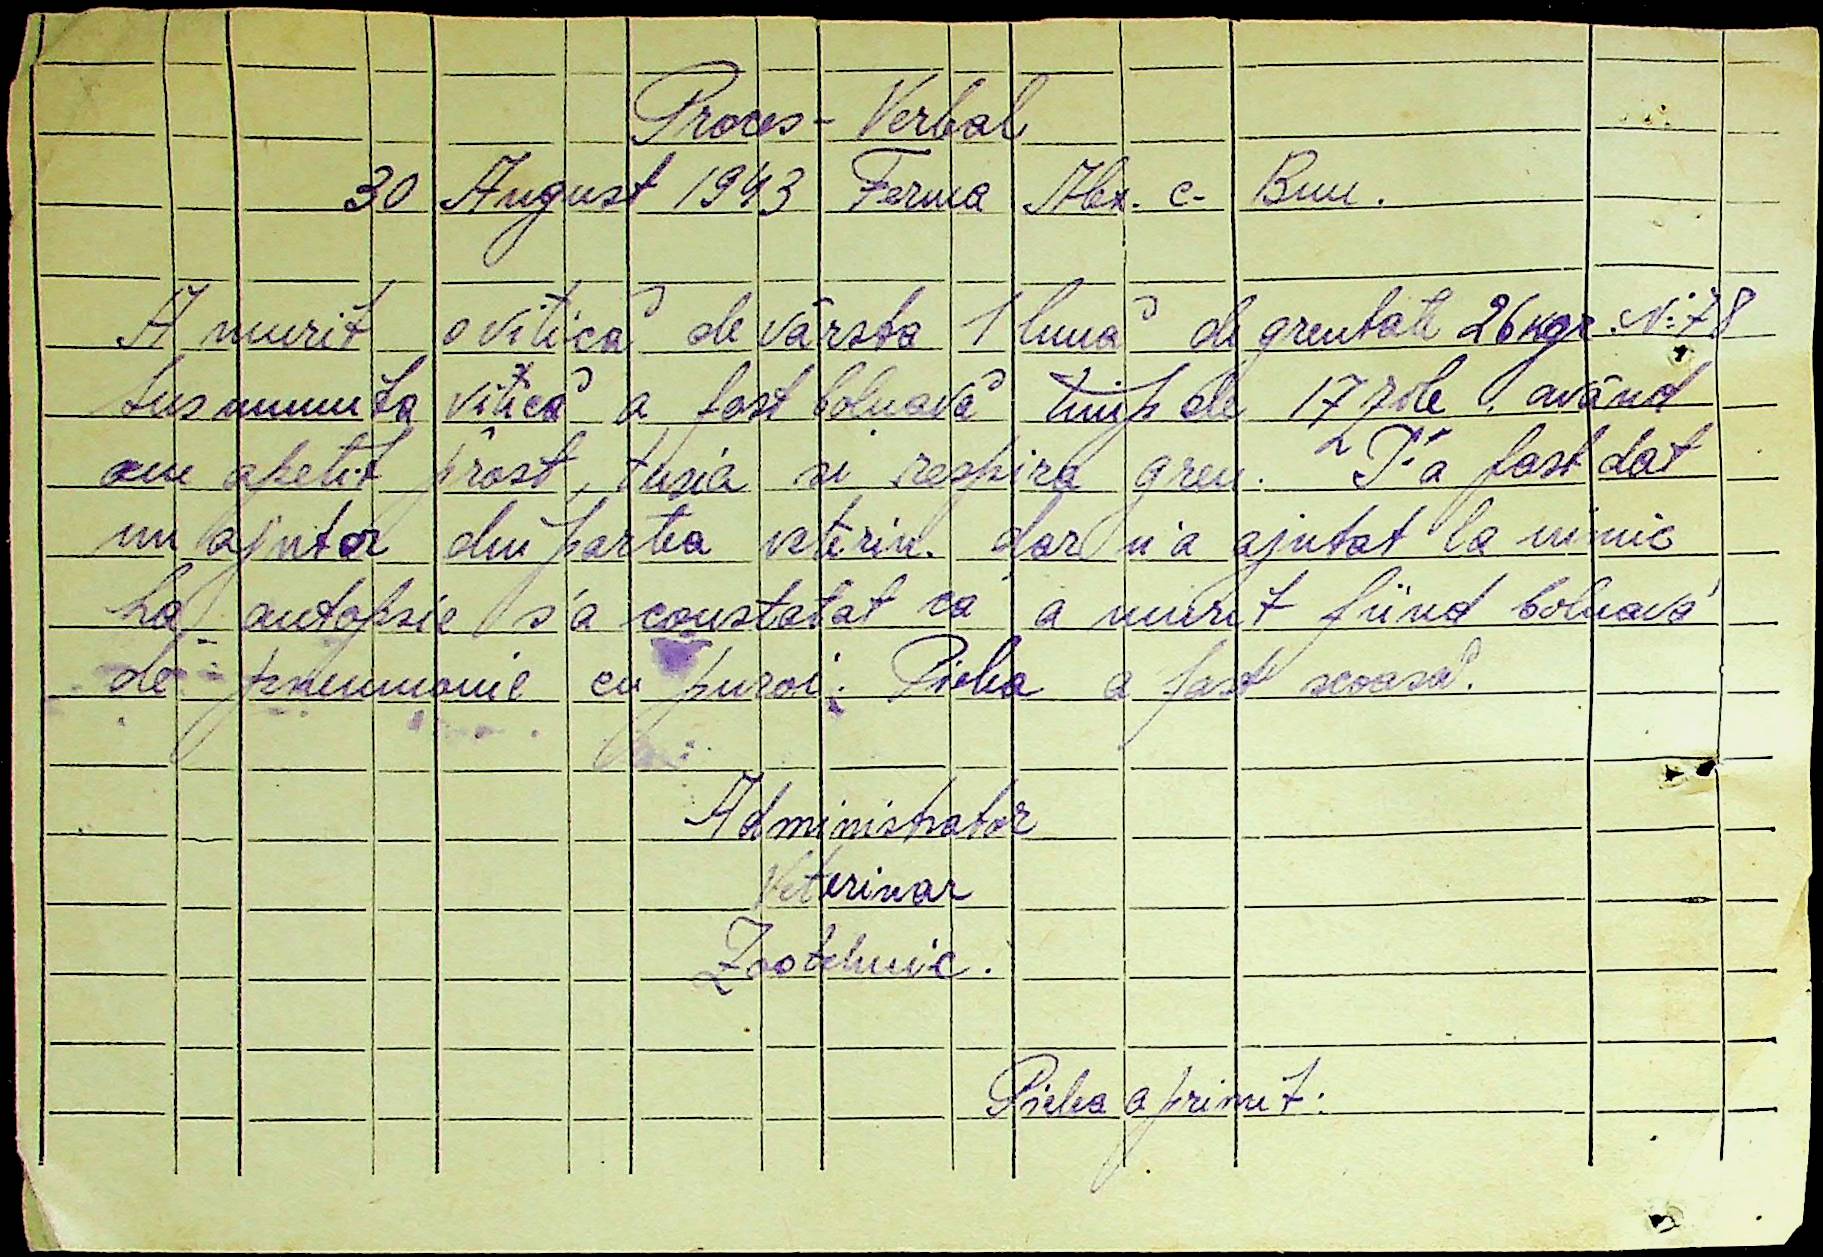 Proces-Verbal
30 August 1943 Ferma Alex. c. Bun.
A murit o vițică de vârsta 1 lună de greutate 26 kgr. No 78
sus numita vițică a fost bolnavă timp de 17 zile, având
un apetit prost, tusia si respira greu. I s'a fost dat
un ajutor din partea veterin. dar n'a ajutat la nimic
La autopsie s'a constatat că a murit fiind bolnavă
de pneumonie cu puroi. Pielea a fost scoasă.
Administrator
Veterinar
Zootehnic.
Pielea a primit: